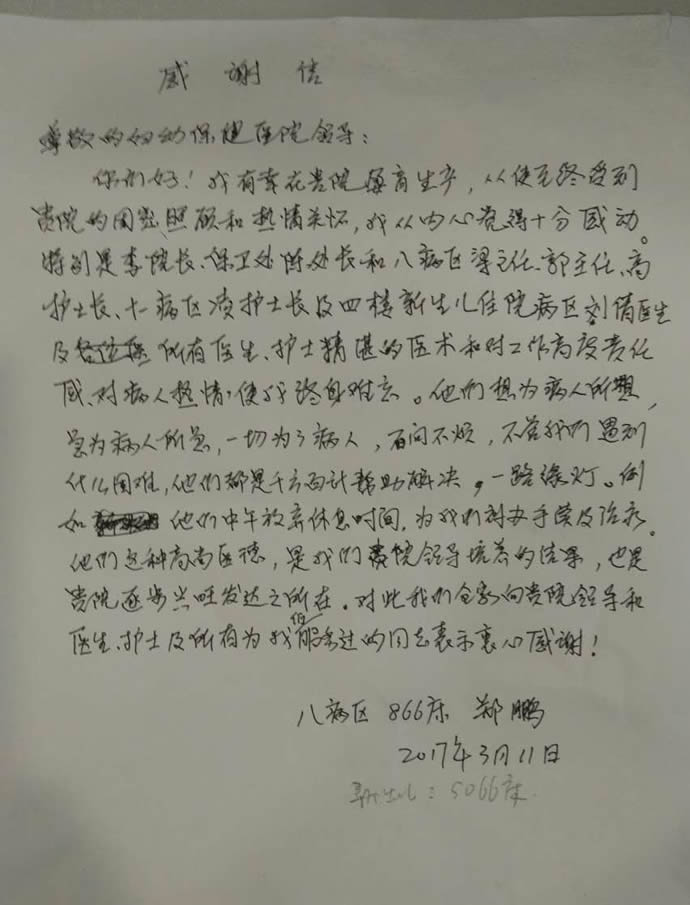 感谢信
尊敬的妇幼保健医院领导：
你们好！我有幸在贵院孕育生产，从使至终受到
贵院的周到照顾和热情关怀，我从内心觉得十分感动。
特别是李院长、保卫处陈处长和八病区梁主任、郭主任、高
护士长、十一病区凌护士长及四楼新生儿住院病区刘倩医生
及所有医生、护士精湛的医术和对工作高度责任
感、对病人热情，使我终身难忘。他们想为病人所想，
急为病人所急，一切为了病人，百问不烦，不管我们遇到
什么困难，他们都是千方百计帮助解决，一路绿灯。例
如他们中午放弃休息时间，为我们办手续及治疗。
他们这种高尚医德，是我们贵院领导培养的结果，也是
贵院逐步兴旺发达之所在。对此我们全家向贵院领导和
医生、护士及所有为我们服务过的同志表示衷心感谢！
八病区 866床 郑鹏
2017年3月11日
新生儿：5066床